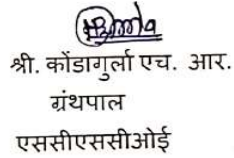 श्री. कोंडागुर्ला एच. आर.
ग्रंथपाल
एससीएससीओई